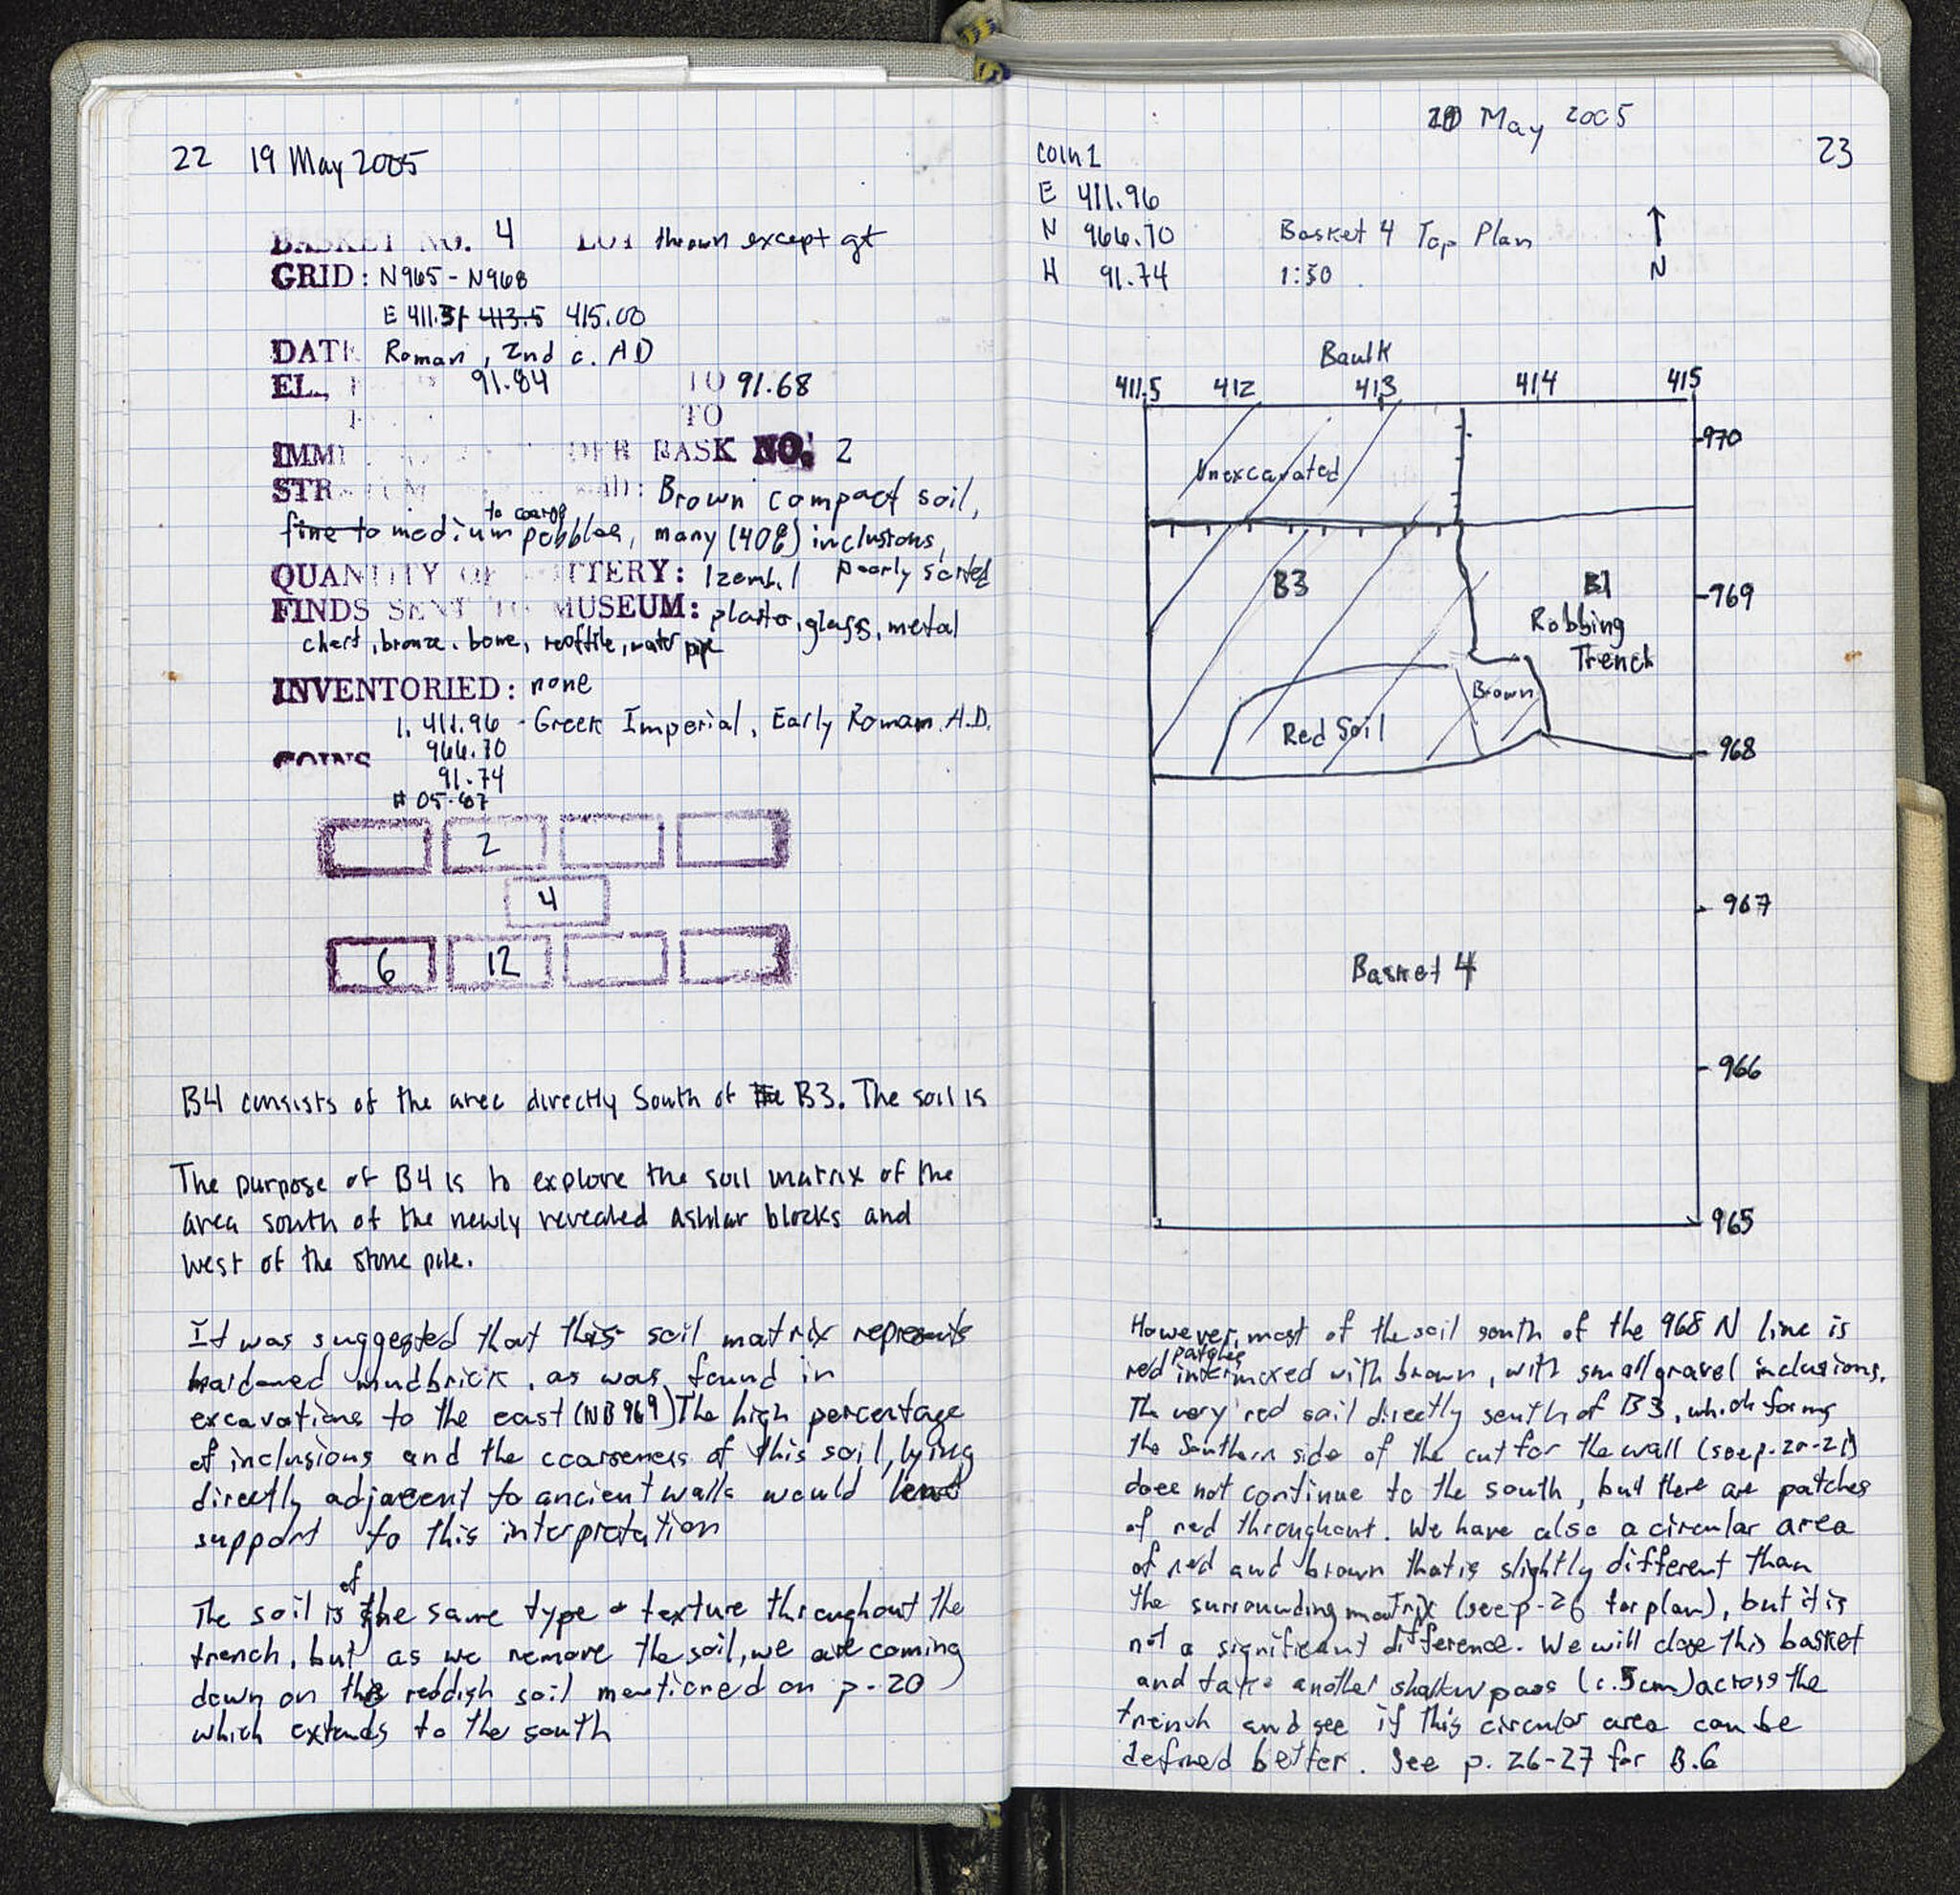 22 19 May 2005
BASKET NO. 4 LOT thrown except gt
GRID: N965 - N968
E 411.51 413.5 415.00
DATE Roman, 2nd c. AD
EL., 91.84 TO 91.68
TO
IMM UNDER BASK NO. 2
STRATUM soil): Brown compact soil,
to coarse
fine to medium pebbles, many (40%) inclusions,
QUANTITY OF POTTERY: 1zemb.1 poorly sorted
FINDS SENT TO MUSEUM: plaster, glass, metal
chert, bronze, bone, rooftile, water pipe
INVENTORIED: none
1. 411.96 - Greek Imperial, Early Roman A.D.
COINS 966.70
91.74
# 05-67
2
4
6 12
B4 consists of the area directly South of the B3. The soil is
The purpose of B4 is to explore the soil matrix of the
area south of the newly revealed ashlar blocks and
west of the stone pile.
It was suggested that this soil matrix represents
hardened mudbrick, as was found in
excavations to the east (NB 969) The high percentage
of inclusions and the coarseness of this soil, lying
directly adjacent to ancient walls would lend
support to this interpretation
of
The soil is the same type + texture throughout the
trench, but as we remove the soil, we are coming
down on the reddish soil mentioned on p. 20
which extends to the south
20 May 2005
23
coin 1
E 411.96
N 966.70
H 91.74
Basket 4 Top Plan
1:50
N
Baulk
411.5 412 413 414 415
970
Unexcavated
B3
B1
Robbing
Trench
969
Brown
Red Soil
968
967
Basket 4
966
965
However, most of the soil south of the 968 N line is
patches
red intermixed with brown, with small gravel inclusions.
The very red soil directly south of B3, which forms
the Southern side of the cut for the wall (see p. 20-21)
does not continue to the south, but there are patches
of red throughout. We have also a circular area
of red and brown that is slightly different than
the surrounding matrix (see p. 26 for plan), but it is
not a significant difference. We will close this basket
and take another shallow pass (c. 5cm) across the
trench and see if this circular area can be
defined better. See p. 26-27 for B.6